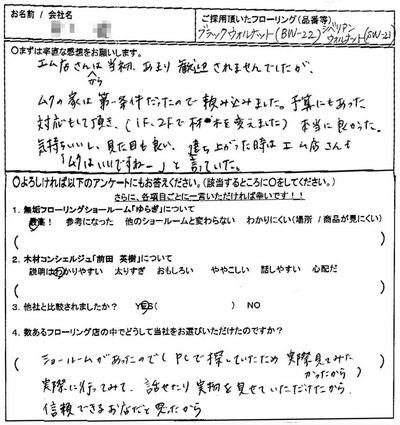 お名前 / 会社名
ご採用頂いたフローリング(品番等)
ブラックウォルナット(BW-22) シベリアンウォルナット(SW-21)
○まずは率直な感想をお願いします。
工ム店さんは当初から、あまり歓迎されませんでしたが、
ムクの家は第一条件だったので頼み込みました。予算にもあった
対応もして頂き、(1F、2Fで材木を変えました) 本当に良かった。
気持ちいいし、見た目も良い、建ち上がった時は工ム店さんも
「ムクはいいですねー」と言っていた。
○よろしければ以下のアンケートにもお答えください。(該当するところに○をしてください。)
さらに、各項目ごとに一言いただければ幸いです!!
1. 無垢フローリングショールーム「ゆらぎ」について
最高! 参考になった 他のショールームと変わらない わかりにくい(場所 / 商品が見にくい)
( )
2. 木材コンシェルジュ「前田 英樹」について
説明はわかりやすい 太りすぎ おもしろい ややこしい 話しやすい 心配だ
( )
3. 他社と比較されましたか? YES( ) NO
4. 数あるフローリング店の中でどうして当社をお選びいただけたのですか?
(ショールームがあったのでし PCで探していたため 実際見てみたかったから)
実際に行ってみて、話せたり実物を見せていただけたから
信頼できるお店だと思ったから